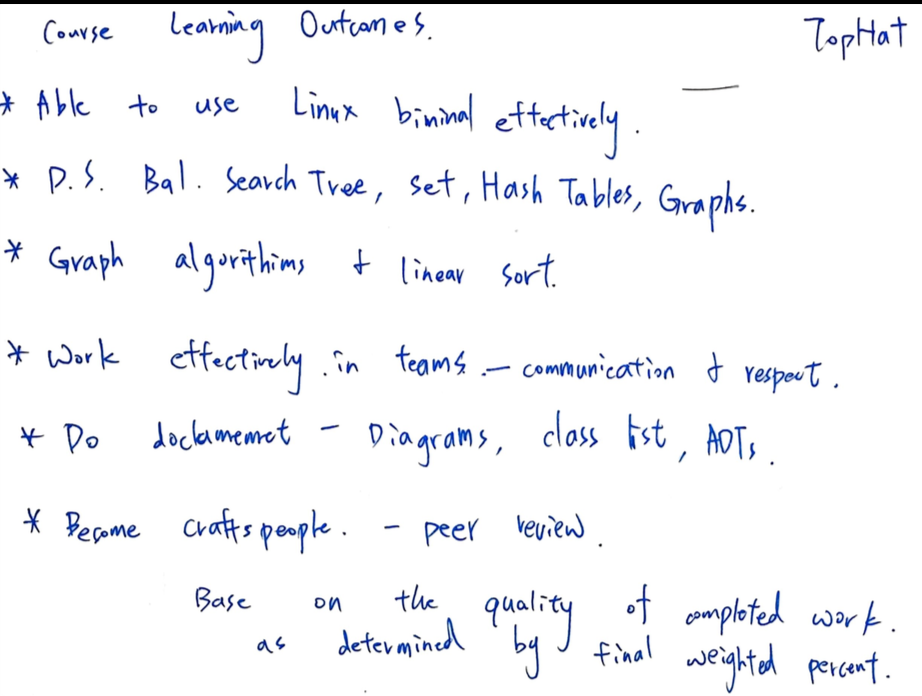 Course Learning Outcomes. TopHat
* Able to use Linux bininal effectively.
* D.S. Bal. Search Tree, Set, Hash Tables, Graphs.
* Graph algorithims & linear sort.
* Work effectively in teams. — communication & respect.
* Do doclamemet - Diagrams, class list, ADTs.
* Become craftspeople. - peer review.
Base on the quality of completed work.
as determined by final weighted percent.